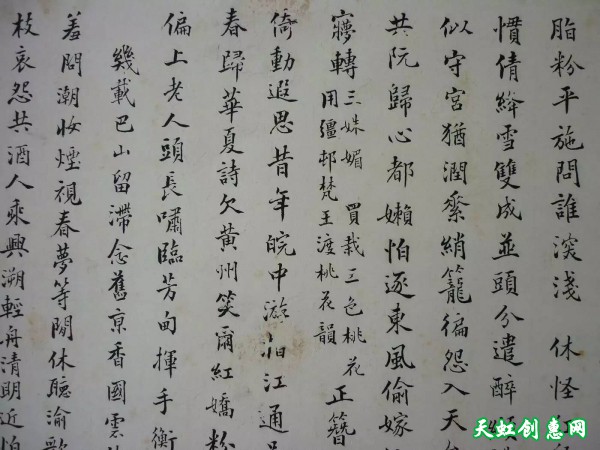 脂粉平施問誰淡淺 休怪紅
慣倩絳雪雙成並頭分遣醉頰
似守宮猶潤縏綃籠徧怨入天
共阮歸心都嬾怕逐東風偷嫁
寱轉 三姝媚 買栽三色桃花
用彊邨梵王渡桃花韻 正簪
倚動遐思昔年皖中游泊江通
春歸華夏詩欠黃州笑爾紅嬌粉
偏上老人頭長嘯臨芳甸揮手衡
幾載巴山留滯念舊京香國雲
羞問潮妝煙視春夢等閒休聽渝歌
枝哀怨共酒人乘興溯輕舟清明近怕
天虹创惠网